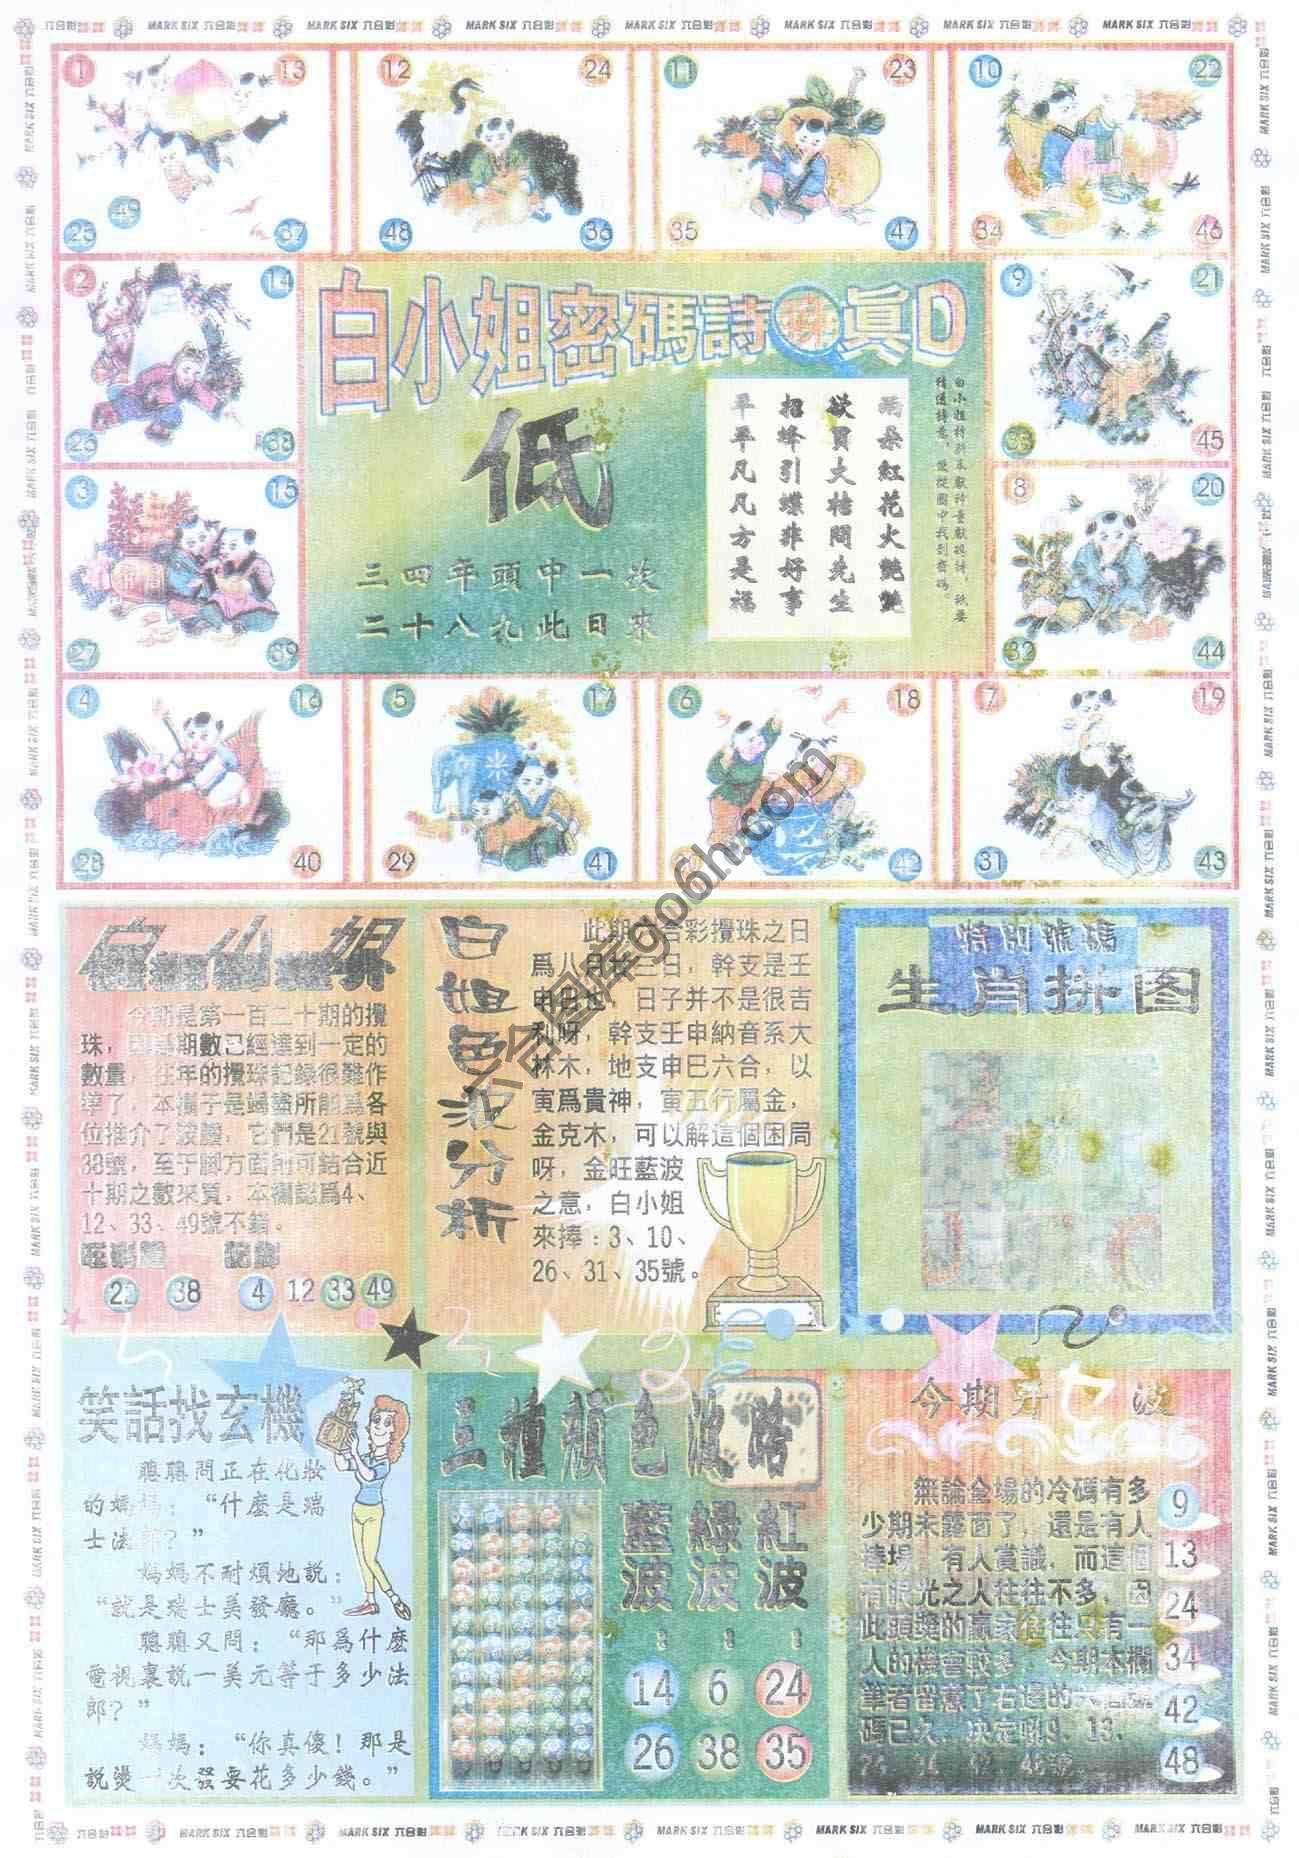 MARK SIX 六合彩
1
13
49
25
37
12
24
48
36
11
23
35
47
10
22
34
46
2
14
26
38
9
21
33
45
3
15
27
39
8
20
32
44
4
16
28
40
5
17
29
41
6
18
42
7
19
31
43
白小姐密碼詩
真D
低
三四年頭中一次
二十八九此日來
兩朵紅花火艷艷
欲買大桔問先生
招蜂引蝶非好事
平平凡凡方是福
白小姐
今期是第一百二十期的攪
珠，因為期數已經達到一定的
數量，往年的攪珠記錄很難作
準了，本欄子是竭盡所能爲各
位推介了波膽，它們是21號與
38號，至于腳方面則可結合近
十期之數來買，本欄認爲4、
12、33、49號不錯。
38
4
12
33
49
白姐色波分析
此期六合彩攪珠之日
爲八月廿三日，幹支是壬
申日也，日子并不是很吉
利呀，幹支壬申納音系大
林木，地支申巳六合，以
寅爲貴神，寅五行屬金，
金克木，可以解這個困局
呀，金旺藍波
之意，白小姐
來捧：3、10、
26、31、35號。
特别號碼
生肖拼图
笑話找玄機
聰聰問正在化妝
的媽媽：“什麽是瑞
士法郎？”
媽媽不耐煩地説：
“就是瑞士美發廳。”
聰聰又問：“那爲什麽
電視裏説一美元等于多少法
郎？”
媽媽：“你真傻！那是
説燙一次發要花多少錢。”
三種顏色波路
藍波：
14
26
綠波：
6
38
紅波：
24
35
無論全場的冷碼有多
少期未露面了，還是有人
捧場，有人賞識，而這個
有眼光之人往往不多，因
此頭獎的贏家往往只有一
人的機會較多，今期本欄
筆者留意了右邊的六
碼已久，决定吼9、13、
9
13
24
34
42
48
六合图库go6h.com